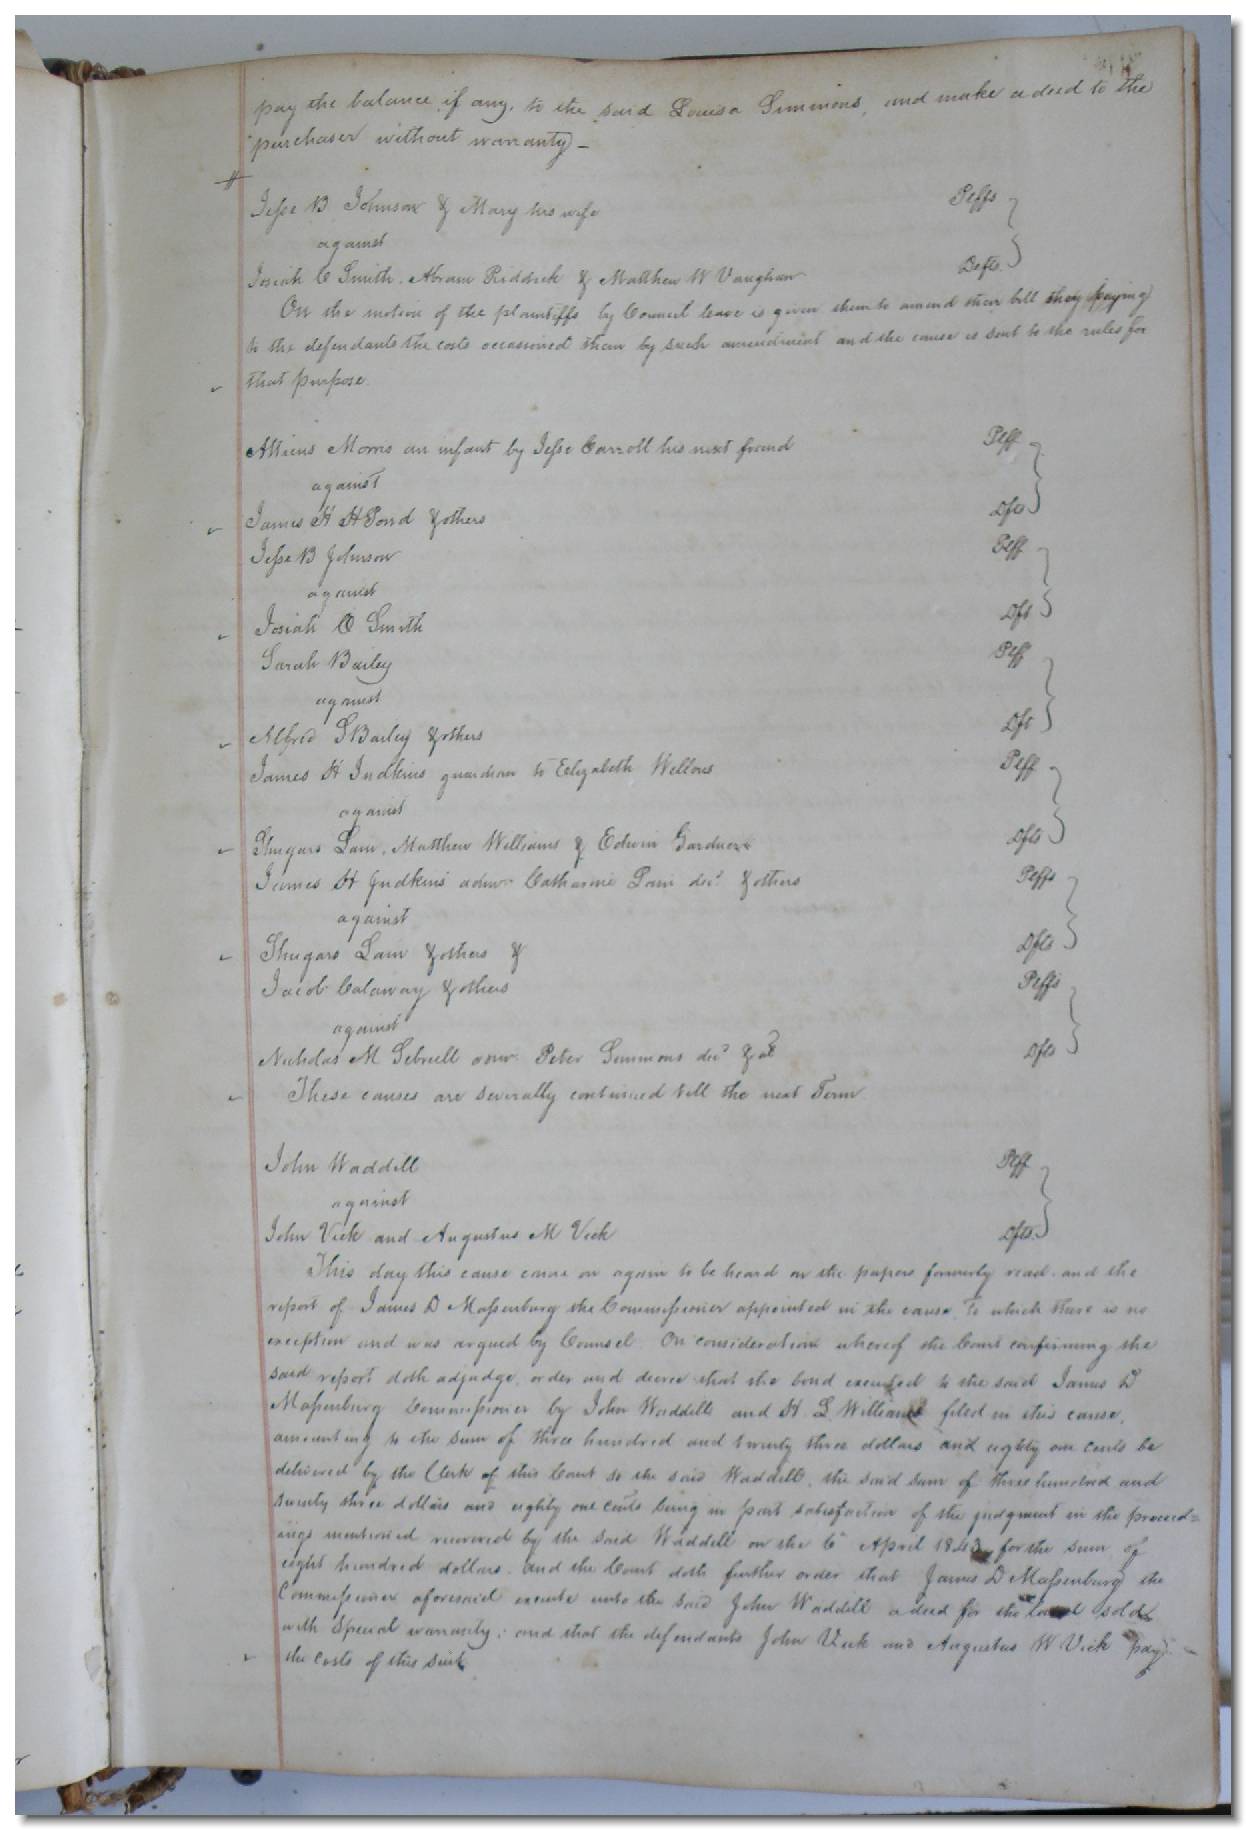 pay the balance if any, to the said Louisa Simmons, and make a deed to the
purchaser without warranty –
Jesse B Johnson & Mary his wife Plffs
against
Josiah C Smith, Abram Riddick & Matthew W Vaughan Defts.
On the motion of the plaintiffs by Council leave is given them to amend their bill they paying
to the defendants the costs occasioned them by such amendment and the cause is sent to the rules for
that purpose.
Atticus Morris an infant by Jesse Carroll his next friend Plff
against
James H H Pond & others Dfts
Jesse B Johnson Plff
against
Josiah C Smith Dft
Sarah Bailey Plff
against
Alfred S Bailey & others Dft
James H Judkins guardian to Elizabeth Wellons Plff
against
Shugars Lain, Matthew Williams & Edwin Gardner Dfts
James H Judkins admr Catharine Lain decd & others Plffs
against
Shugars Lain & others & Dfts
Jacob Calaway & others Plffs
against
Nicholas M Sebrell admr Peter Simmons decd & al Dfts
These causes are severally continued till the next Term
John Waddill Plff
against
John Vick and Augustus M Vick Dfts.
This day this cause came on again to be heard on the papers formerly read, and the
report of James D Massenburg the Commissioner appointed in the cause, to which there is no
exception and was argued by Counsel. On consideration whereof the Court confirming the
said report doth adjudge, order and decree that the bond executed to the said James D
Massenburg Commissioner by John Waddill and H. L. Williams filed in this cause,
amounting to the sum of three hundred and twenty three dollars and eighty one cents be
delivered by the Clerk of this Court to the said Waddill, the said sum of three hundred and
twenty three dollars and eighty one cents being in part satisfaction of the judgment in the proceed=
ings mentioned recovered by the said Waddill on the 6th April 1843, for the sum of
eight hundred dollars. And the Court doth further order that James D Massenburg the
Commissioner aforesaid execute unto the said John Waddill a deed for the land sold
with Special warranty; and that the defendants John Vick and Augustus W Vick pay
the costs of this suit